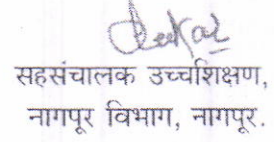 सहसंचालक उच्चशिक्षण,
नागपूर विभाग, नागपूर.